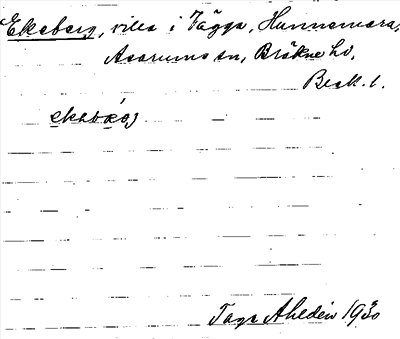 Ekeberg, villa i Tägga, Hunnemara,
Asarums sn, Bräkne hd,
Blek. l.
ekebærj
Tage Ahldén 1930